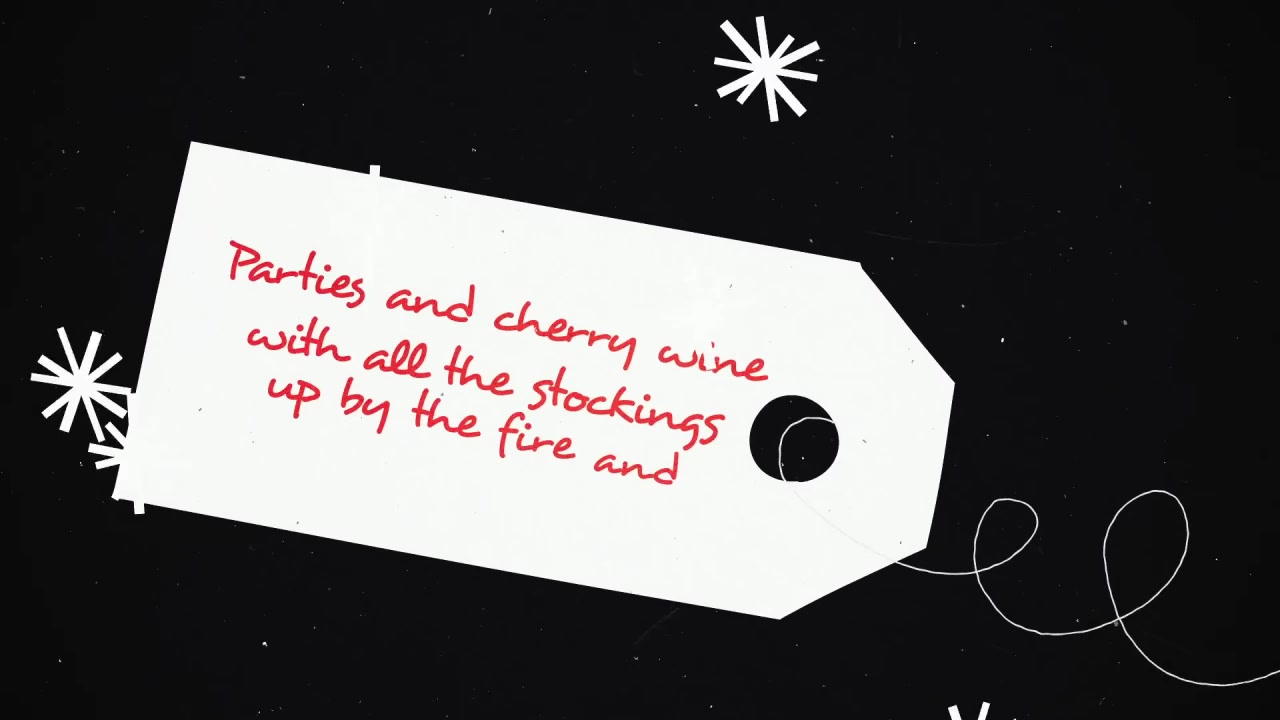 Parties and cherry wine
with all the stockings
up by the fire and